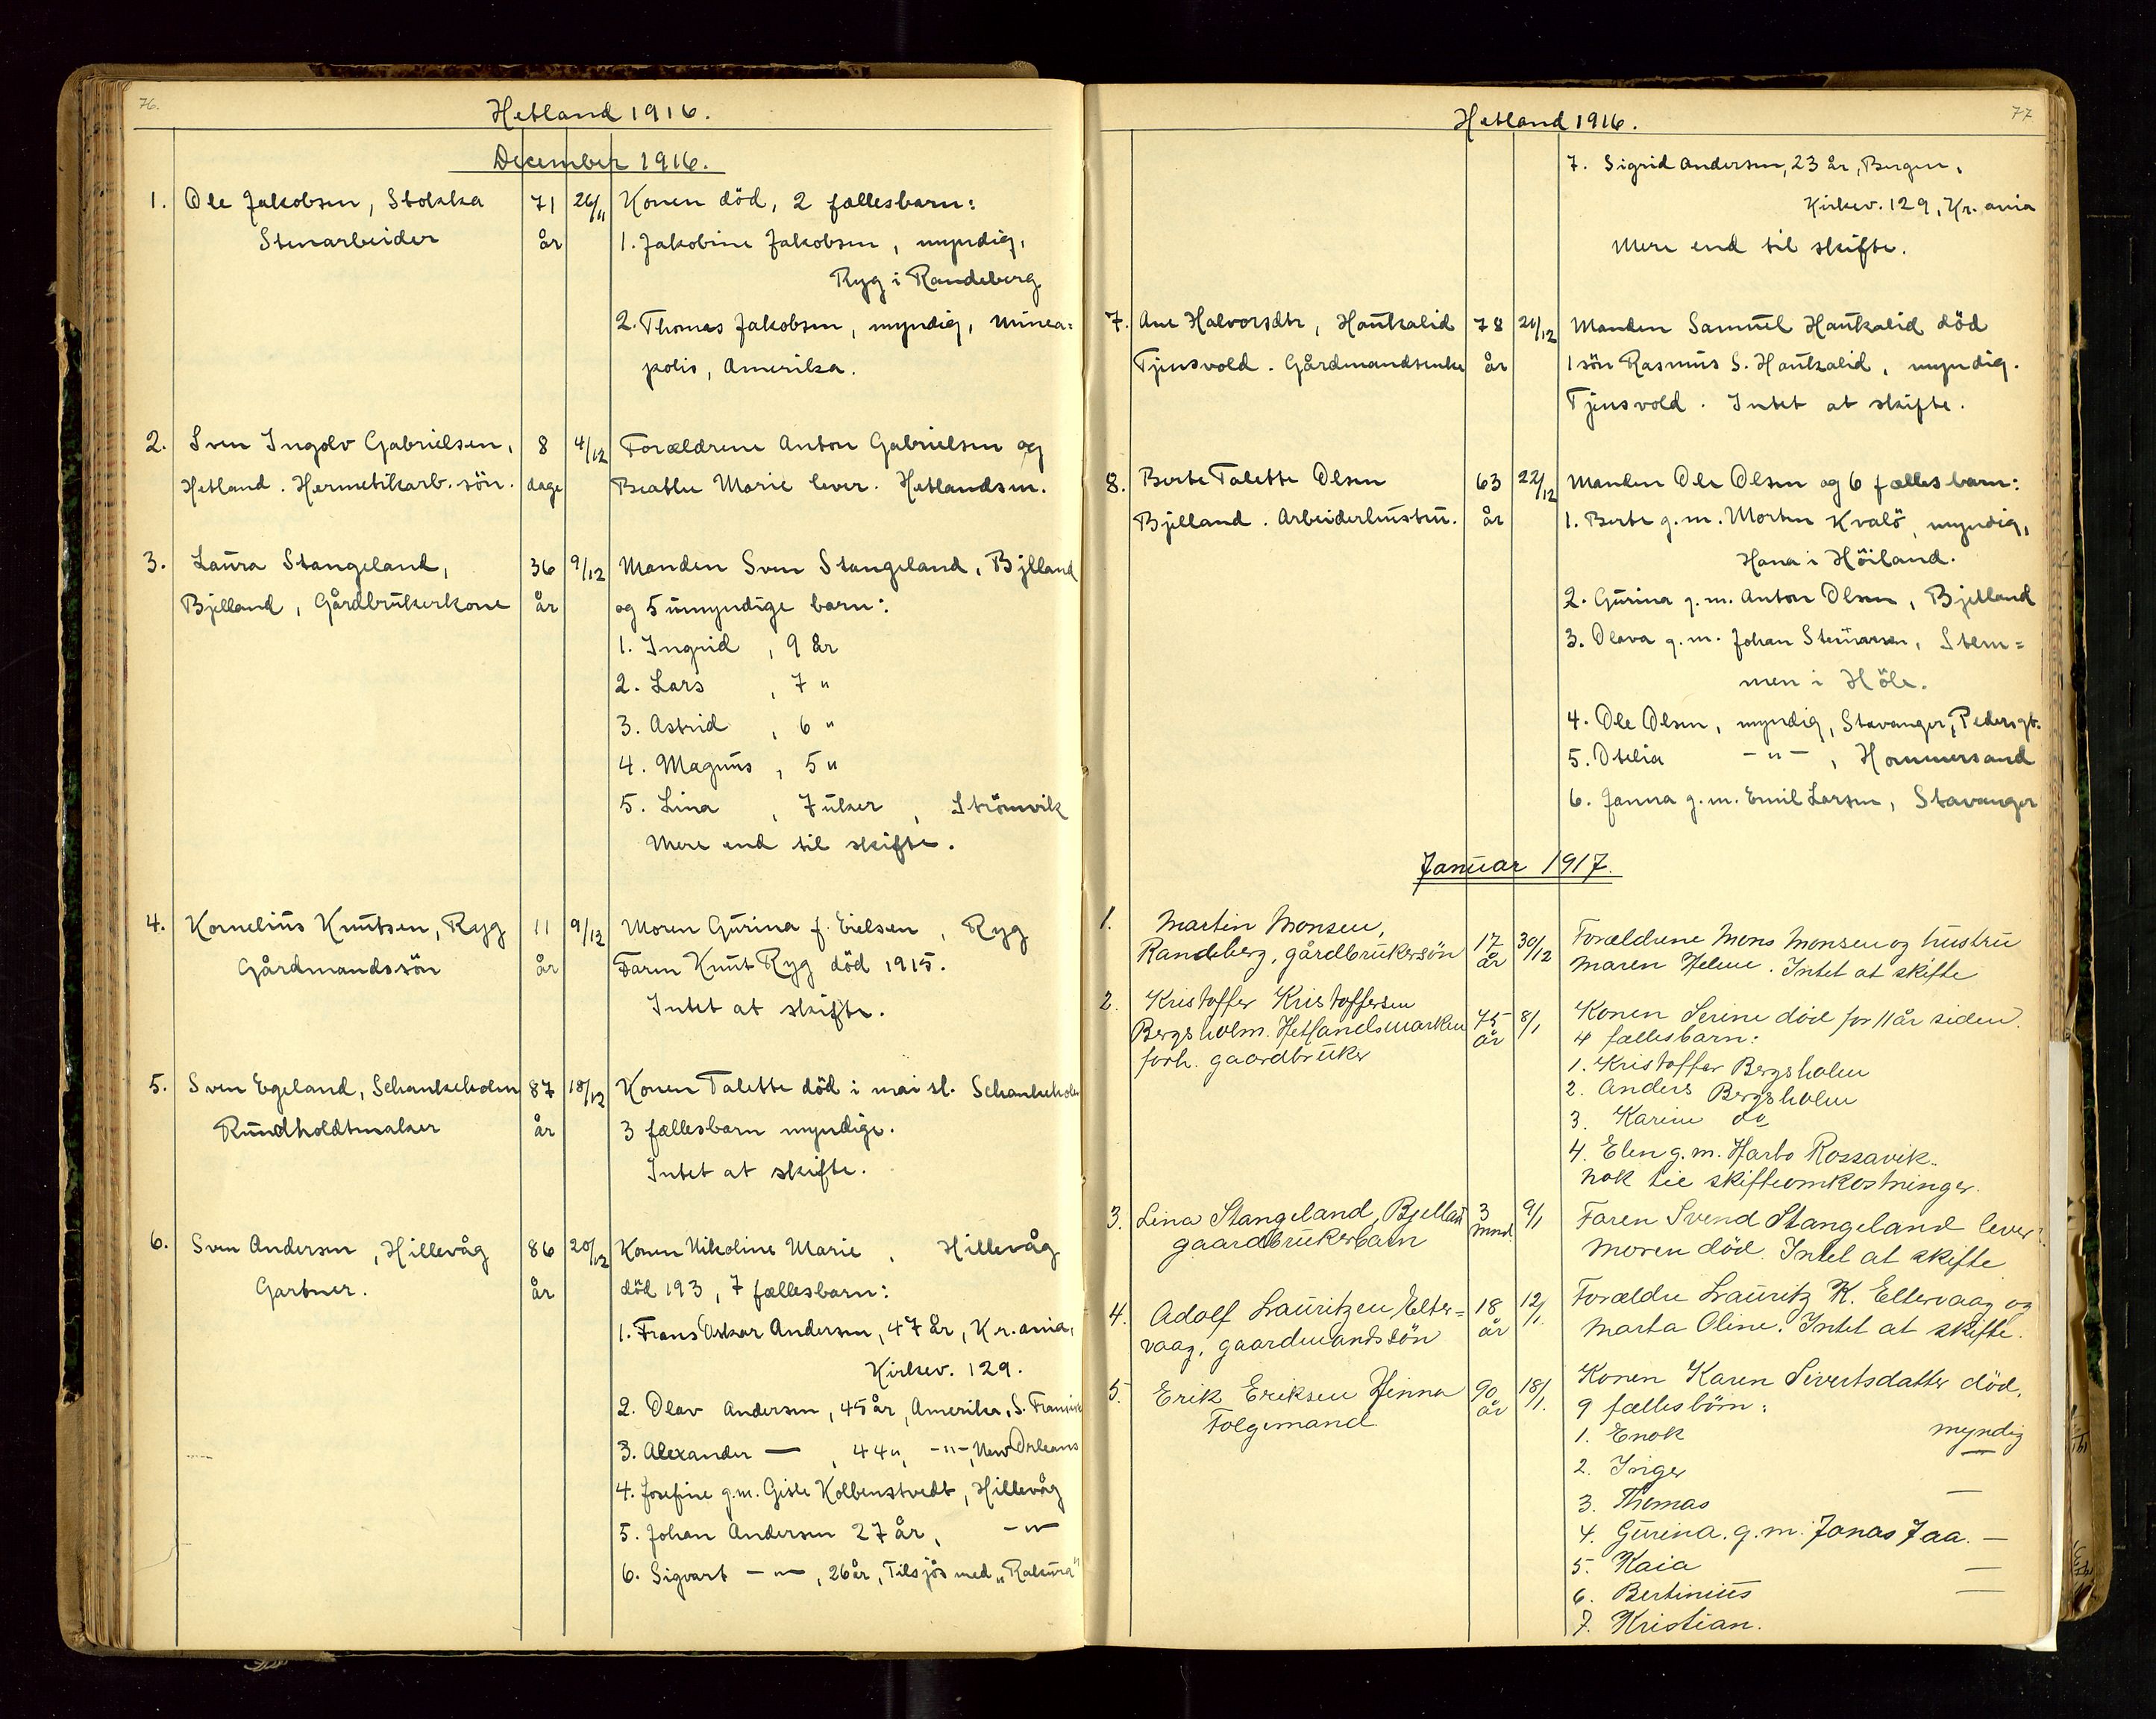 76.
Hetland 1916.
December 1916.
1. Ole Jakobsen, Stokka 71 26/11 Konen död, 2 fællesbarn:
Stenarbeider år 1. Jakobine Jakobsen, myndig,
Ryg i Randeberg
2. Thomas Jakobsen, myndig, Minea=
polis, Amerika.
2. Sven Ingolv Gabrielsen, 8 4/12 Forældrene Anton Gabrielsen og
Hetland. Hermetikarb. sön. dage Beathe Marie lever. Hetlandsm.
3. Laura Stangeland, 36 9/12 Manden Sven Stangeland, Bjelland
Bjelland, Gårdbrukerkone år og 5 umyndige barn:
1. Ingrid, 9 år
2. Lars, 7 "
3. Astrid, 6 "
4. Magnus, 5 "
5. Lina, 7 uker, Strömvik
Mere end til skifte.
4. Kornelius Knutsen, Ryg 11 9/12 Moren Gurina f. Eielsen, Ryg
Gårdmandssön år Faren Knut Ryg död 1915.
Intet at skifte.
5. Sven Egeland, Schankeholm 87 18/12 Konen Talette död i mai sl. Schankeholm
Rundholdtmaker år 3 fællesbarn myndige.
Intet at skifte.
6. Sven Andersen, Hillevåg 86 20/12 Konen Nikoline Marie, Hillevåg
Gartner. år död 193, 7 fællesbarn:
1. Frans Oskar Andersen, 47 år, Kr.ania,
Kirkev. 129.
2. Olav Andersen, 45 år, Amerika, S. Fransisk
3. Alexander —, 44 ", -"-, New Orleans
4. Josefine g.m. Giste Kolbenstvedt, Hillevåg
5. Johan Andersen 27 år, -"-
6. Sigvart -"-, 26 år, Tilsjös med „Rakura"
77
Hetland 1916.
7. Sigrid Andersen, 23 år, Bergen,
Kirkev. 129, Kr.ania
Mere end til skifte.
7. Ane Halvorsdtr, Haukalid 78 21/12 Manden Samuel Haukalid död
Tjensvold. Gårdmandsenke år 1 sön Rasmus S. Haukalid, myndig.
Tjensvold. Intet at skifte.
8. Berte Talette Olsen 63 22/12 Manden Ole Olsen og 6 fællesbarn:
Bjelland. Arbeiderhustru. år 1. Berte g.m. Morten Kvalö, myndig,
Hana i Höiland.
2. Gurina g.m. Anton Olsen, Bjelland
3. Olava g.m. Johan Stemarsen, Stem=
men i Höle.
4. Ole Olsen, myndig, Stavanger, Pedersgt.
5. Otelia -"-, Hommersand
6. Janna g.m. Emil Larsen, Stavanger
Januar 1917.
1. Martin Monsen, 17 30/12 Forældrene Mons Monsen og hustru
Randeberg, gårdbrukersön år Maren Helene. Intet at skifte
2. Kristoffer Kristoffersen 75 8/1 Konen Serine död for 11 år siden.
Bergsholm. Hetlandsmarken år 4 fællesbarn:
forh. gaardbruker 1. Kristoffer Bergsholm
2. Anders Bergsholm
3. Karine do
4. Elen g.m. Harbo Rossavik.
Nok tie skifteomkostninger.
3. Lina Stangeland, Bjelland 3 9/1 Faren Svend Stangeland lever.
gaardbrukerbarn mnd. Moren död. Intet at skifte
4. Adolf Lauritzen Elter= 18 12/1. Forældre Lauritz K. Eltervaag og
vaag, gaardmandssön år Marta Oline. Intet at skifte.
5. Erik Eriksen Hinna 90 18/1. Konen Karen Sivertsdatter död,
Folgemand. år 9 fællesbörn:
1. Enok myndig
2. Inger —"—
3. Thomas —
4. Gurina. g.m. Jonas Jaa. —
5. Kaia —
6. Bertinius —
7. Kristian.